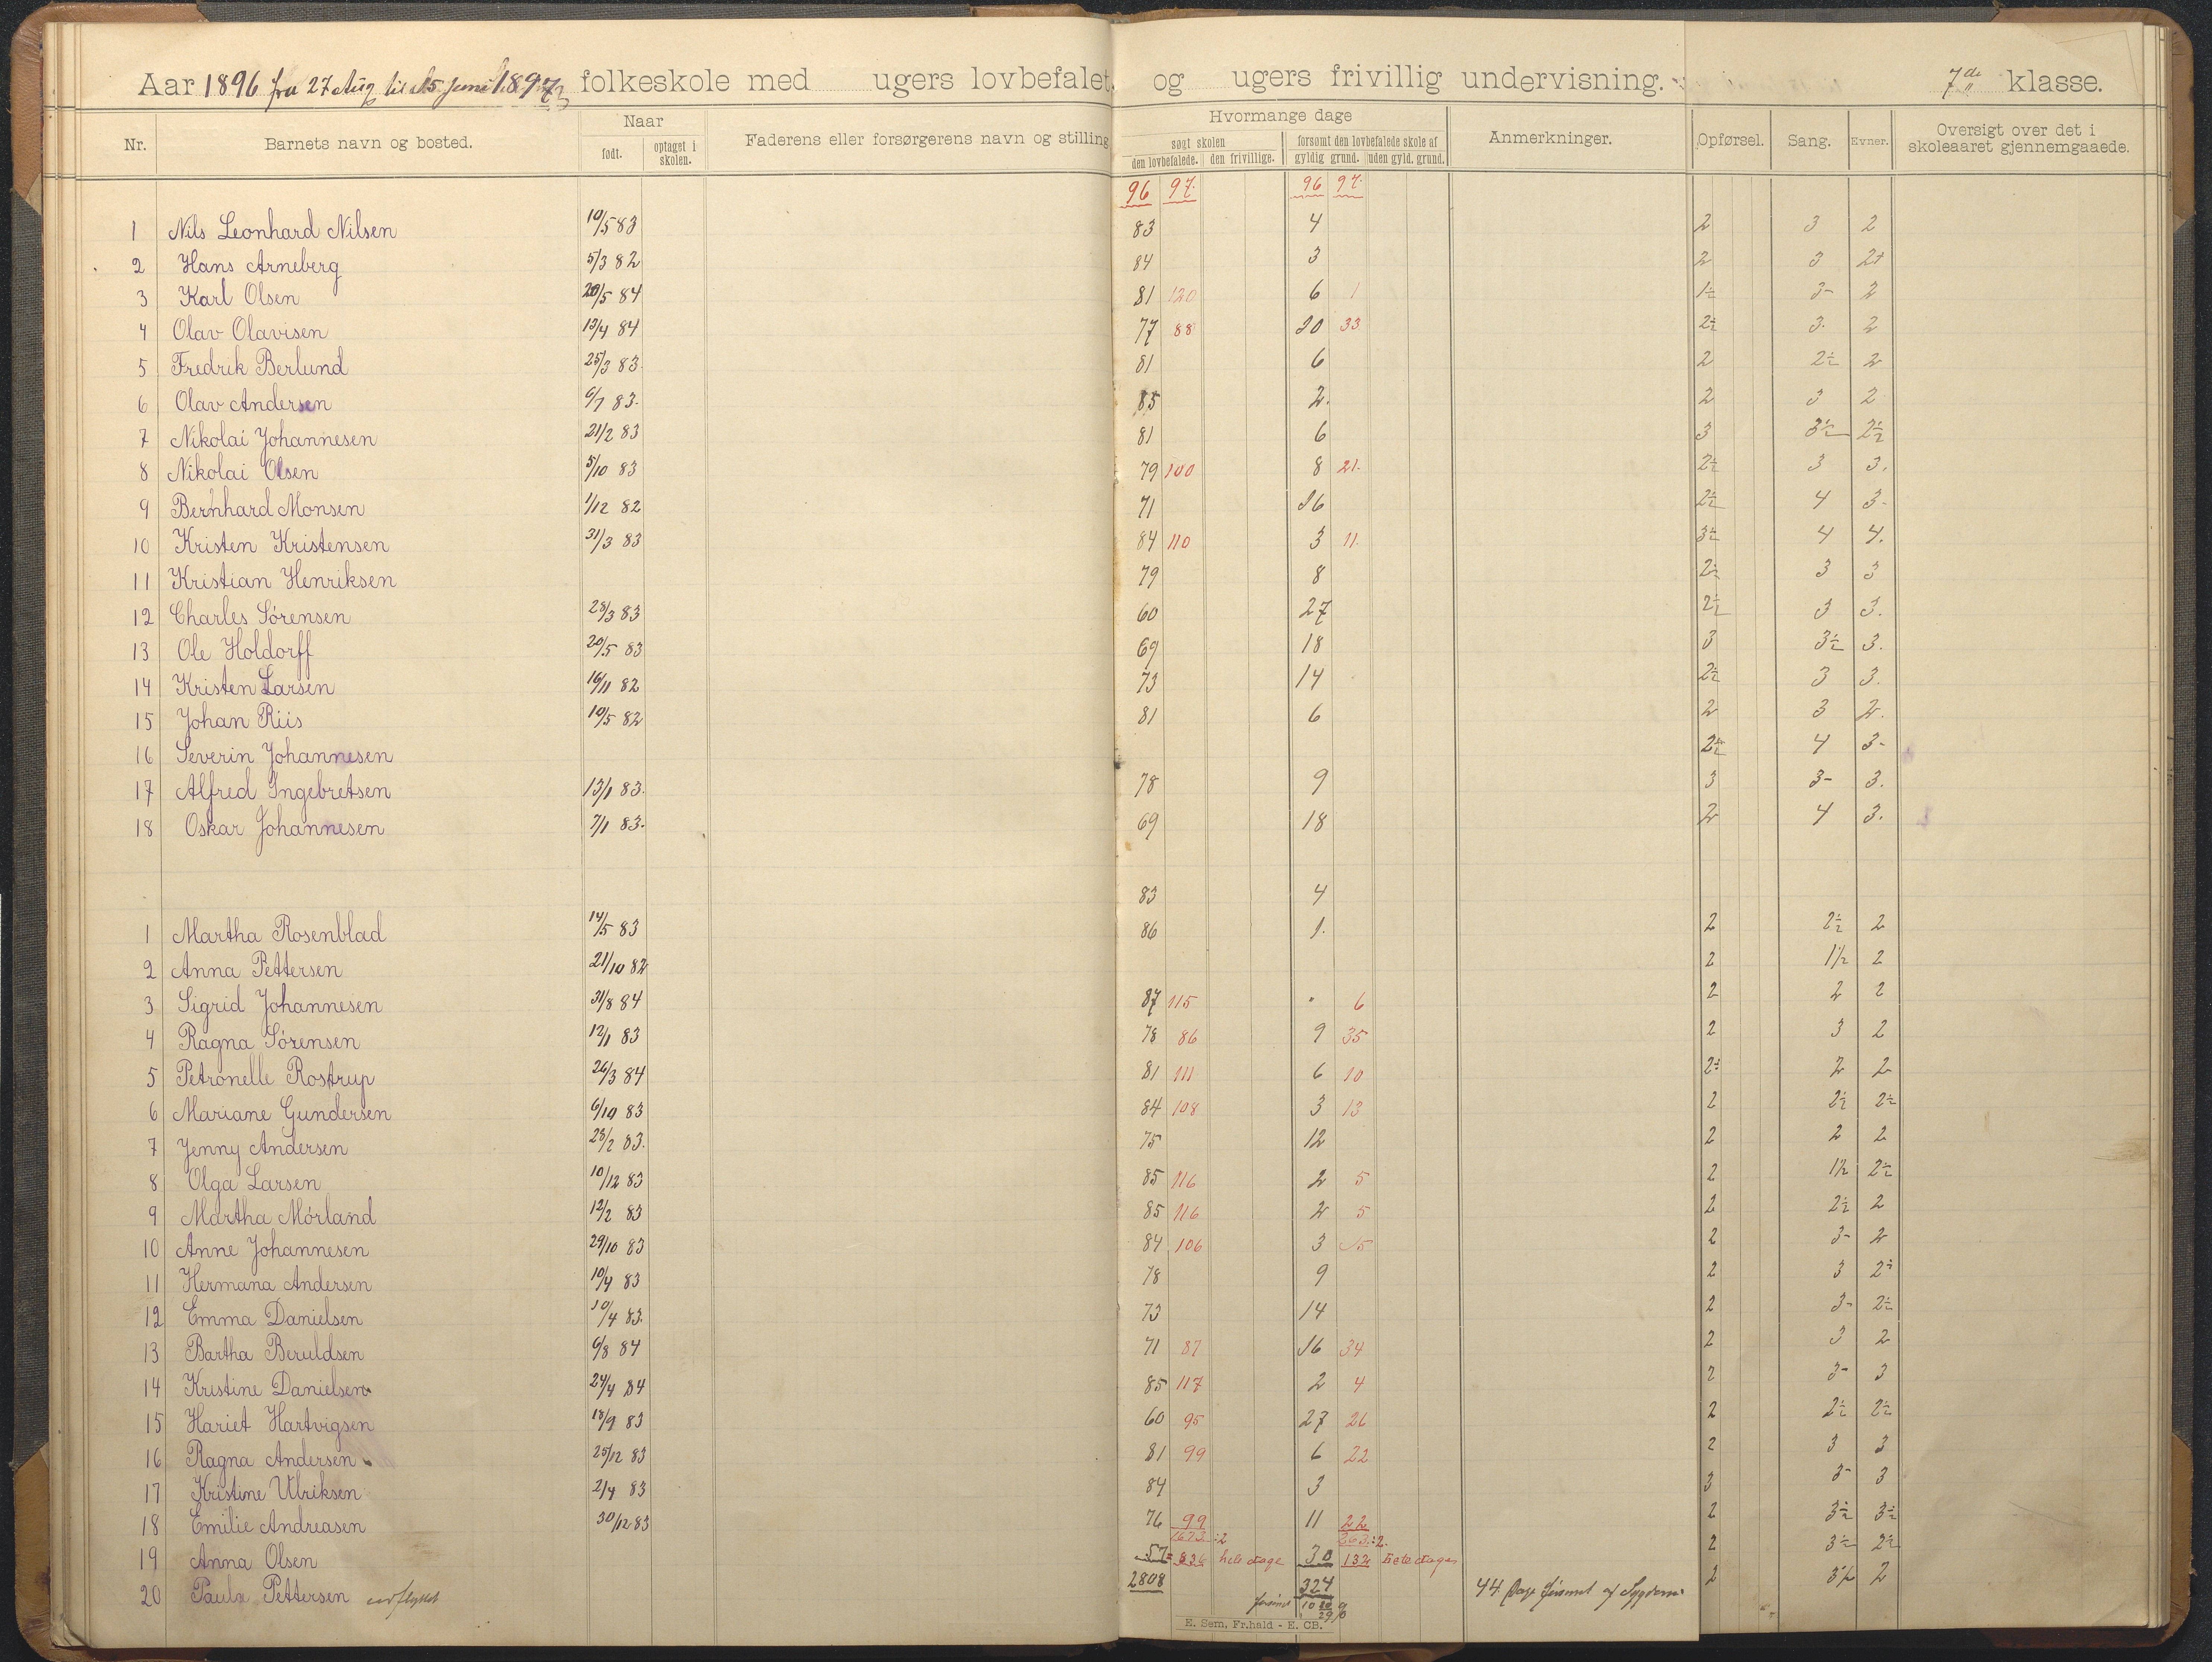 Aar 1896 fra 27 Aug til 15 Juni 1897 folkeskole med ugers lovbefalet og ugers frivillig undervisning. 7de klasse.
Nr. Barnets navn og bosted. Naar født. optaget i skolen. Faderens eller forsørgerens navn og stilling Hvormange dage søgt skolen den lovbefalede. den frivillige. forsømt den lovbefalede skole af gyldig grund. uden gyld. grund. Anmerkninger. Opførsel. Sang. Evner. Oversigt over det i skoleaaret gjennemgaaede.
96 97. 96 97.
1 Nils Leonhard Nilsen 10/5 83 83 4 2 3 2
2 Hans Arneberg 5/3 82 84 3 2 3 2+
3 Karl Olsen 20/5 84 81 120 6 1 1½ 3- 2
4 Olav Olavisen 13/4 84 77 88 20 33 2½ 3. 2
5 Fredrik Berlund 25/3 83. 81 6 2 2½ 2
6 Olav Andersen 6/7 83. 85 2. 2 3 2
7 Nikolai Johannesen 21/2 83 81 6 3 3½ 2½
8 Nikolai Olsen 5/10 83 79 100 8 21. 2½ 3 3.
9 Bernhard Monsen 1/12 82 71 16 2½ 4 3-
10 Kristen Kristensen 31/3 83 84 110 3 11. 3½ 4 4.
11 Kristian Henriksen 79 8 2½ 3 3
12 Charles Sörensen 28/3 83 60 27 2½ 3 3.
13 Ole Holdorff 20/5 83 69 18 3 3½ 3.
14 Kristen Larsen 16/11 82 73 14 2½ 3 3.
15 Johan Riis 10/5 82 81 6 2 3 2.
16 Severin Johannesen 2½ 4 3-
17 Alfred Ingebretsen 13/1 83. 78 9 3 3- 3.
18 Oskar Johannesen 7/1 83. 69 18 2 4 3.
83 4
1 Martha Rosenblad 14/5 83 86 1. 2 2½ 2
2 Anna Pettersen 21/10 82 2 1½ 2
3 Sigrid Johannesen 31/8 84 87 115 " 6 2 2 2
4 Ragna Sörensen 12/1 83 78 86 9 35 2 3 2
5 Petronelle Rostrup 26/3 84 81 111 6 10 2½ 2 2
6 Mariane Gundersen 6/10 83 84 108 3 13 2 2½ 2½
7 Jenny Andersen 23/2 83. 75 12 2 2 2
8 Olga Larsen 10/12 83 85 116 2 5 2 1½ 2½
9 Martha Mörland 12/2 83 85 116 2 5 2 2½ 2
10 Anne Johannesen 29/10 83 84 106 3 15 2 3- 2
11 Hermana Andersen 10/4 83 78 9 2 3 2½
12 Emma Danielsen 10/4 83. 73 14 2 3- 2½
13 Bartha Beruldsen 6/8 84 71 87 16 34 2 3 2
14 Kristine Danielsen 24/4 84 85 117 2 4 2 3- 3
15 Hariet Hartvigsen 18/9 83 60 95 27 26 2 2½ 2½
16 Ragna Andersen 25/12 83 81 99 6 22 2 3 3
17 Kristine Ulriksen 2/4 83 84 3 3 3- 3
18 Emilie Andreasen 30/12 83 76 99 11 22 2 3½ 3½
1673 :2 263 :2.
19 Anna Olsen 57 = 836 hele dage 30 132 hele dage 2 3½ 2½
20 Paula Pettersen 2808 324 44 Dage forsömt af Sygdom 2 3½ 2
E. Sem, Fr.hald - E. CB.